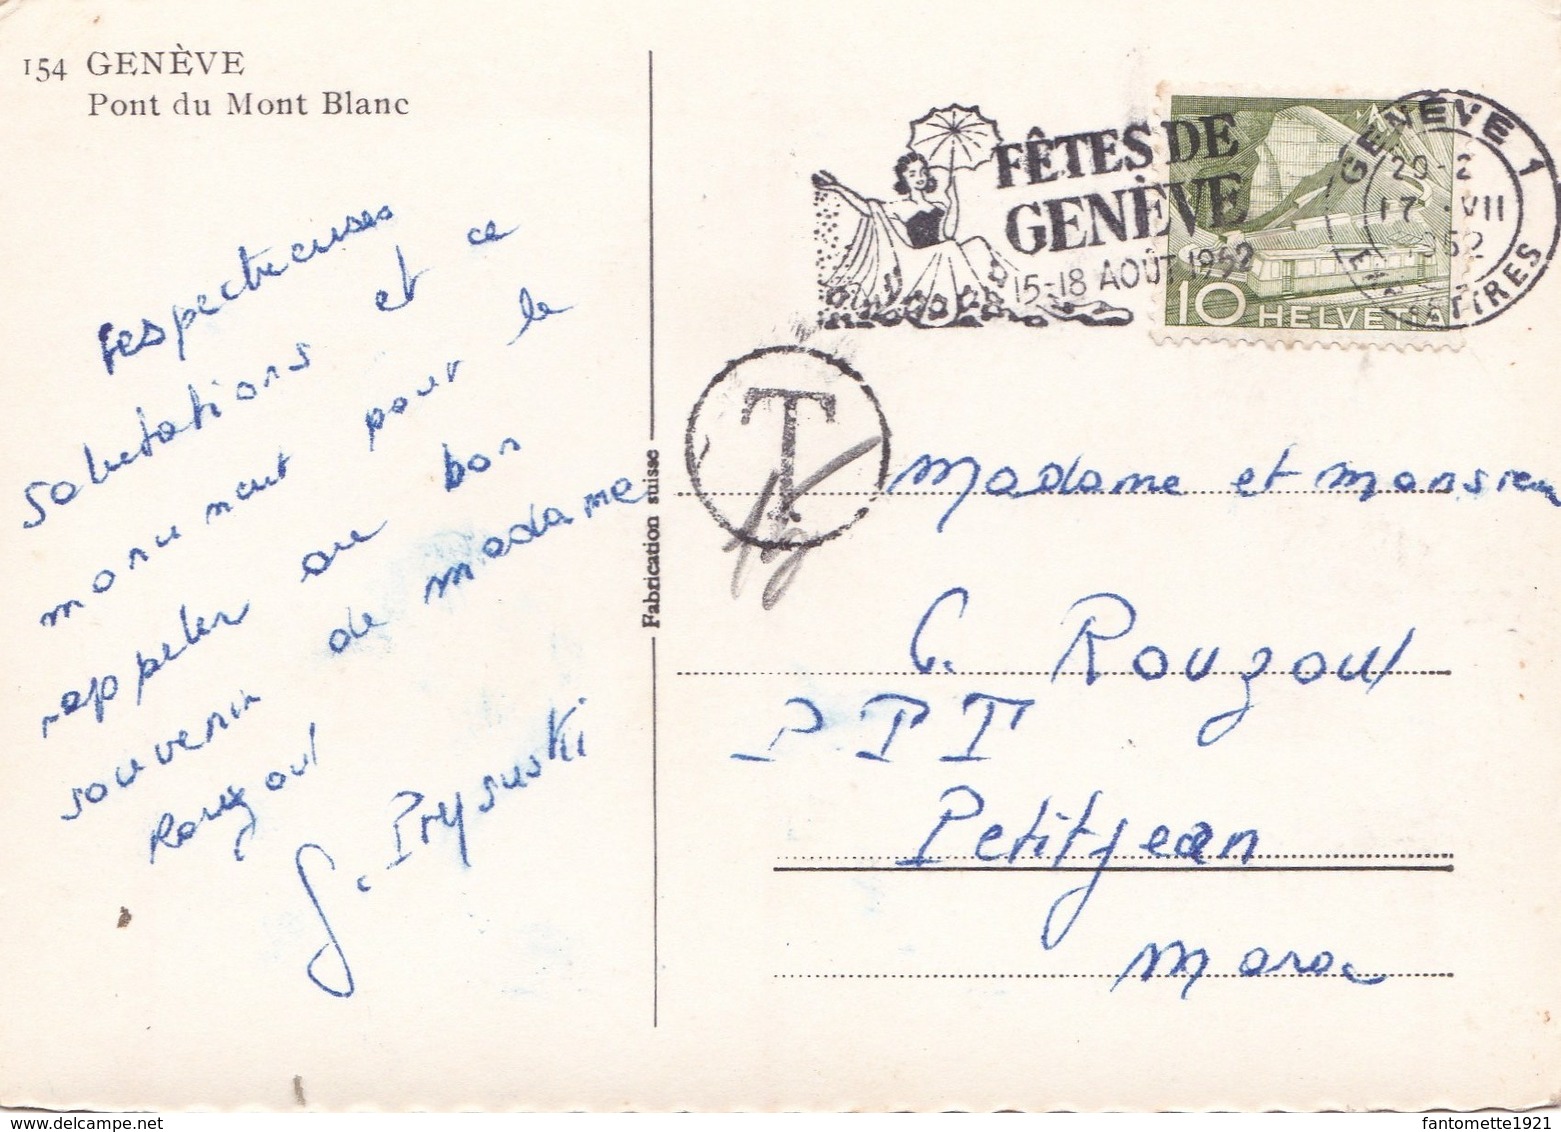 154 GENÈVE
Pont du Mont Blanc
respectueuses
salutations et ce
monument pour le
rappeler au bon
souvenir de madame
Rouzoul
G. Prysuski
Fabrication suisse
FÊTES DE
GENÈVE
15-18 AOÛT 1952
GENÈVE 1
20-2
17 VII
1952
10 HELVETIA
T
Madame et monsieur
C. Rouzoul
PTT
Petitjean
maroc
fantomette1921